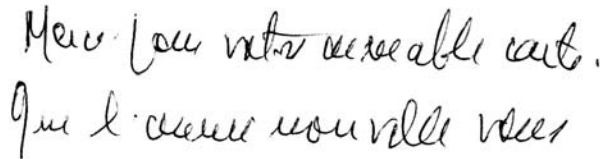 Merci pour votre agréable carte.
Que l'année nouvelle vous